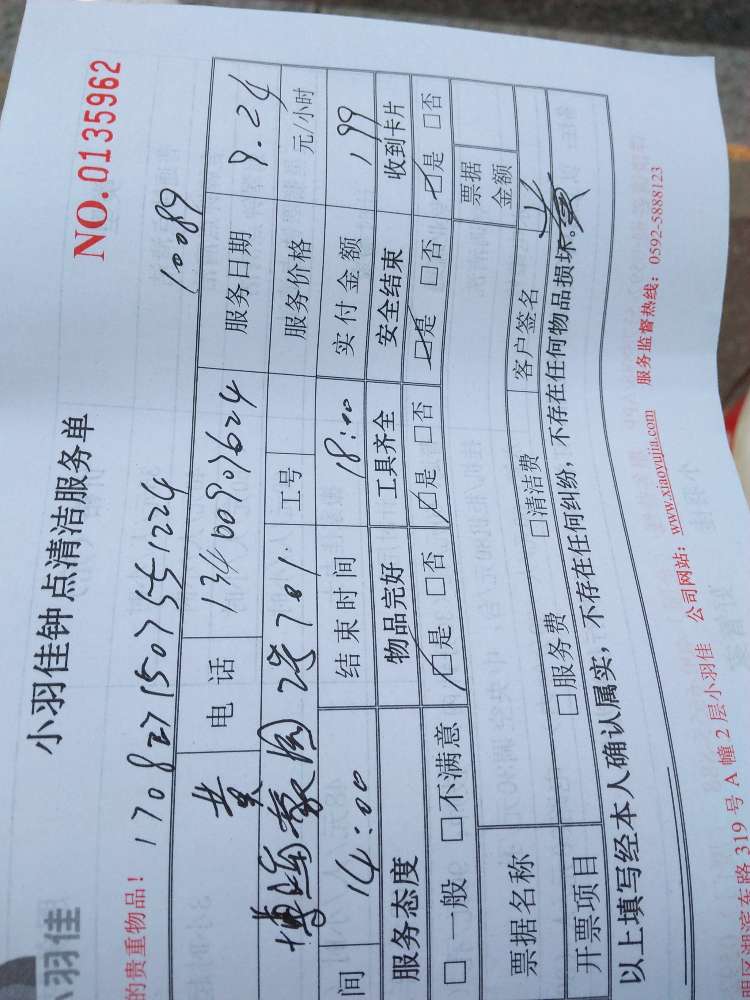 小羽佳钟点清洁服务单
NO.0135962
小羽佳
的贵重物品！ 1708271507551224 10089
黄 电 话 13400907624 服务日期 9.24
博海豪园 701 工号 服务价格 元/小时
间 14:00 结束时间 18:00 实付金额 199
服务态度 物品完好 工具齐全 安全结束 收到卡片
□ 一般 □不满意 □是 □否 □是 □否 □是 □否 □是 □否
票据名称 票据金额
开票项目 □服务费 □清洁费 客户签名 黄
以上填写经本人确认属实，不存在任何纠纷，不存在任何物品损坏。
区湖滨东路 319 号 A 幢 2 层小羽佳 公司网站：www.xiaoyujia.com 服务监督热线：0592-5888123